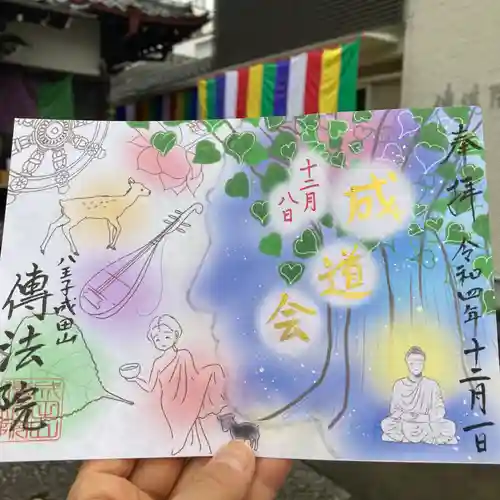 奉拝 令和四年十二月一日
十二月
八日
成
道
会
八王子成田山
傳法院